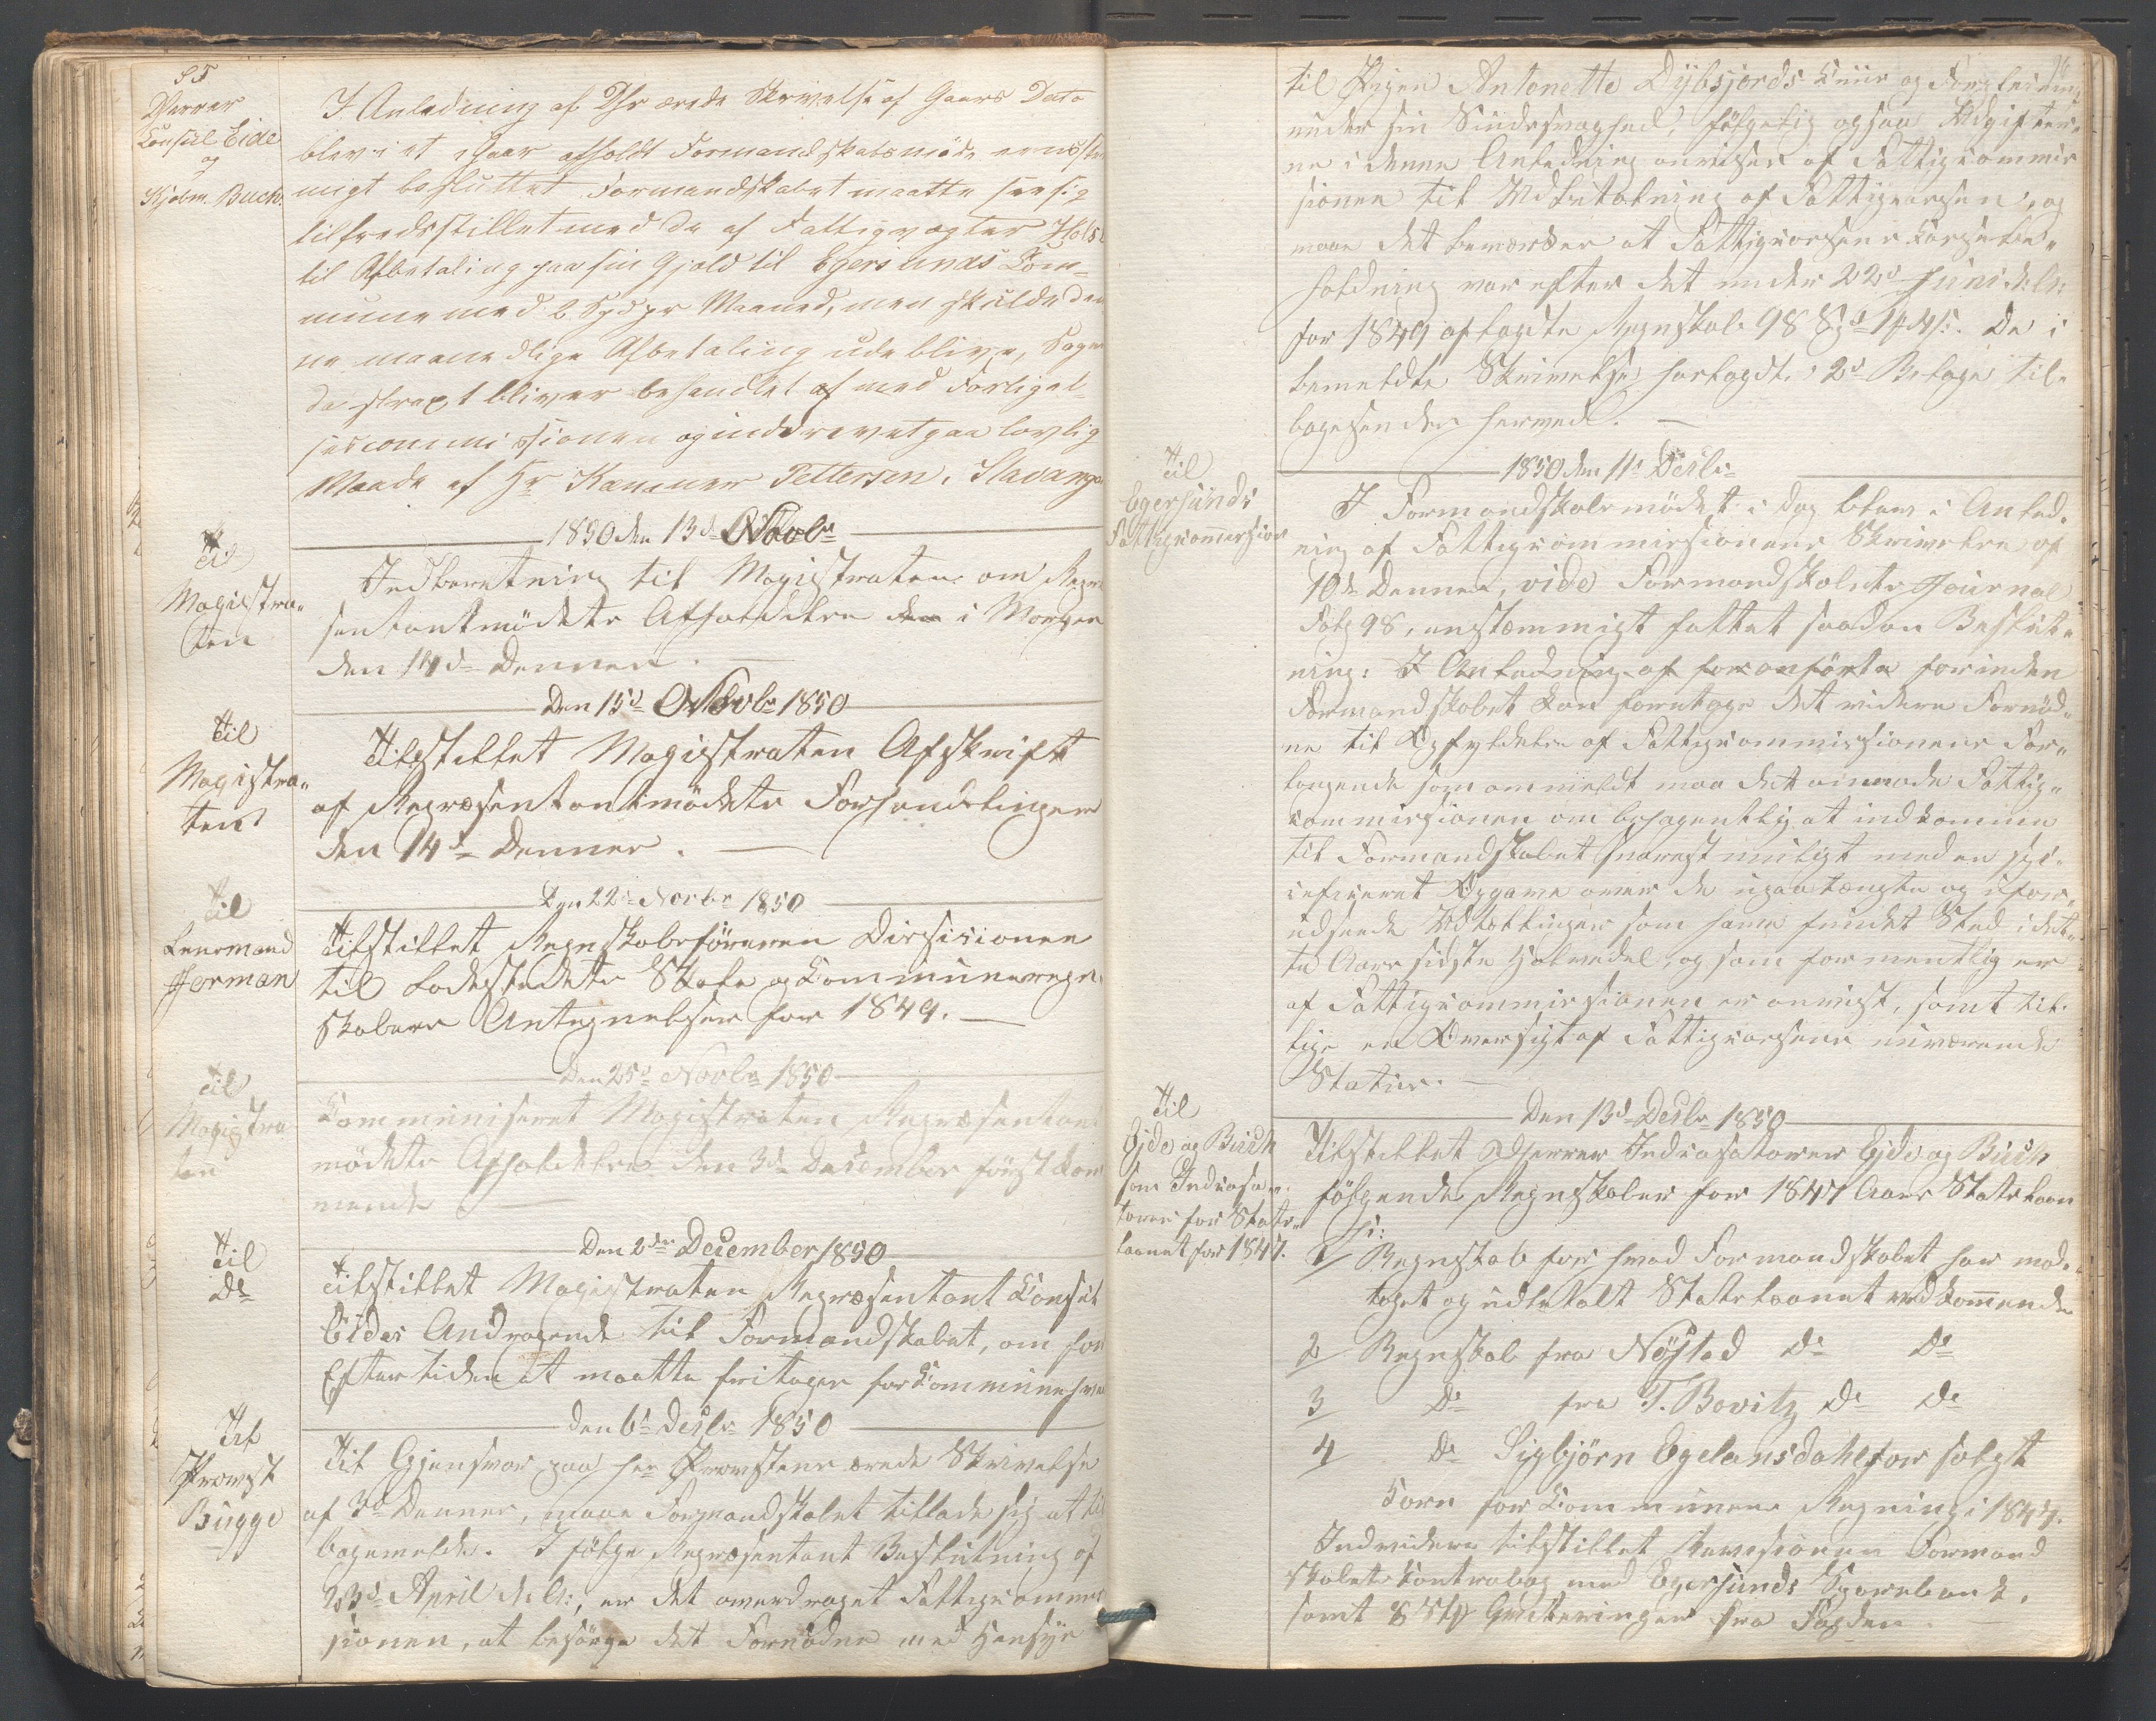 95
Herrer
Consul Eide
og
Kjøbm. Buch.
I Anledning af D'Hr ærede Skrivelse af Gaars Dato
blev i et igaar afholdt Formandskabsmøde eensstem
migt besluttet Formandskabet maatte see sig
tilfredsstillet med de af Fattigvægter
til Afbetaling paa sin Gjæld til Egersunds Com-
mune med 2 Spd pr Maaned, men skulde den
ne maanedlige Afbetaling udeblive, Sagen
da straxt bliver behandlet af med Forligel-
sescommissionen og inddrevet paa lovlig
Maade af Hr Kæmner Pettersen, Stavanger
1850 den 13d Novbr
Til
Magistra-
ten
Indberetning til Magistraten om Repræ
sentantmødets Afholdelse den i Morgen
den 14d Dennes.
Den 15d Novbr 1850
Til
Magistra-
ten
Tilstillet Magistraten Afskrift
af Repræsentantmødets Forhandlinger
den 14d Dennes.
Den 22d Novbr 1850
Til
Leensmand
Forman
Tilstillet Regnskabsføreren Decisionen
til Ladestedets Skole og Communeregn-
skabers Antegnelser for 1849.
Den 25d Novbr 1850
Til
Magistra
ten
Communiseret Magistraten Repræsentant
mødets Afholdelse den 3d December først kom
mende
Den 2den December 1850
Til
Do
Tilstillet Magistraten Repræsentant Consul
Eides Andragende til Formandskabet, om for
Eftertiden at maatte fritages for Communehverv
Den 6d Decbr 1850
Til
Provst
Bugge
Til Gjensvar paa Hr Provstens ærede Skrivelse
af 3d Dennes, maae Formandskabet tillade sig at til
bagemelde. I følge Repræsentant Beslutning af
23d April d: A:, er det overdraget Fattigcommis
sionen, at besørge det Fornødne med Hensyn
til Pigen Antonette Dybsjords Cuur og Forpleining
under sin Sindssvaghed, følgelig ogsaa Udgifter-
ne i denne Anledning anvises af Fattigcommis
sionen til Udbetalning af Fattigcassen, og
maa det bemærkes at Fattigcassens Cassebe-
holdning var efter det under 22d Juni d: A:
for 1849 aflagte Regnskab 98 Spd 14 s. De i
bemeldte Skrivelse fortagdte 2d Bilage til-
bagesendes hermed.
1850 den 11d Decbr
Til
Egersunds
Fattigcommission
I Formandskabsmødet i Dag blev i Anled-
ning af Fattigcommissionens Skrivelse af
10de Dennes, vide Formandskabets Journal
Fol 98, eenstæmmigt fattet saadan Beslut-
ning: I Anledning af foranførte forinden
Formandskabet kan foretage det videre Fornød-
ne til Opfyldelse af Fattigcommissionens For-
langende som ommeldt maa det anmode Fattig-
commissionen om behageligt at indkomme
til Formandskabet snarest muligt med en spe-
cificeret Opgave over de upaatænkte og ufor-
udseede Udtællinger som have fundet Sted i det-
te Aars sidste Halvedel, og som formentlig er
af Fattigcommissionen er anvist, samt til-
lige en Oversigt af Fattigcassens nuværende
Status.
Den 13d Decbr 1850
Til
Ejde og Buch
som Indcassa-
torer for Stats-
laanet for 1847.
Tilstillet D'Herrer Indcasatorer Ejde og Buch
følgende Regnskaber for 1847 Aars Statslaan
1 Regnskab for hvad Formandskabet har mod-
taget og udbetalt Statslaanet vedkommende
2 Regnskab fra Nÿstad Do Do
3 Do fra T. Bovitz Do Do
4 Do Sigbjörn Egelansdahl for solgt
Korn for Communens Regning i 1847.
Endvidere tilstillet Revisionen Formand
skabets Contrabog med Egersunds Sparebank,
samt 8 Stk Qvitteringer fra Fogden